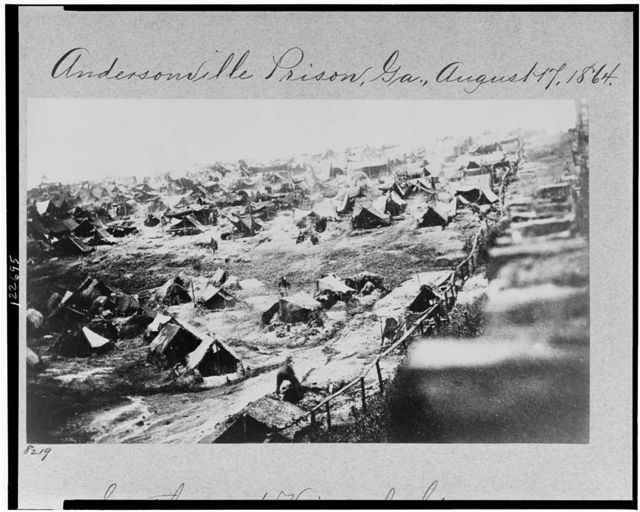 Andersonville Prison, Ga., August 17, 1864.
122695
8219